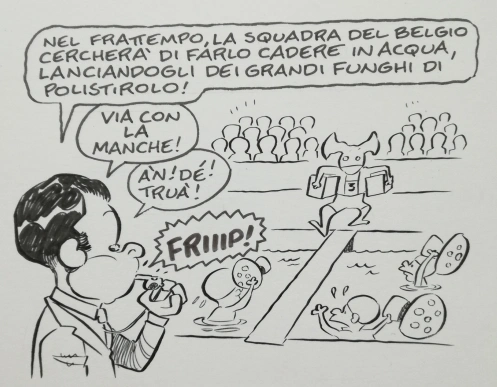 NEL FRATTEMPO, LA SQUADRA DEL BELGIO
CERCHERA' DI FARLO CADERE IN ACQUA,
LANCIANDOGLI DEI GRANDI FUNGHI DI
POLISTIROLO!
VIA CON
LA
MANCHE!
ÀN! DÉ!
TRUÀ!
FRIIIP!
3